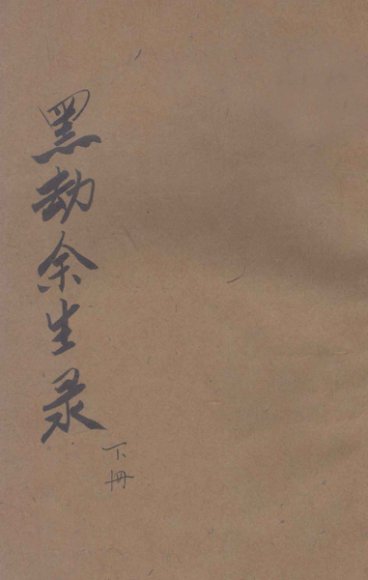 黑劫余生录
下册